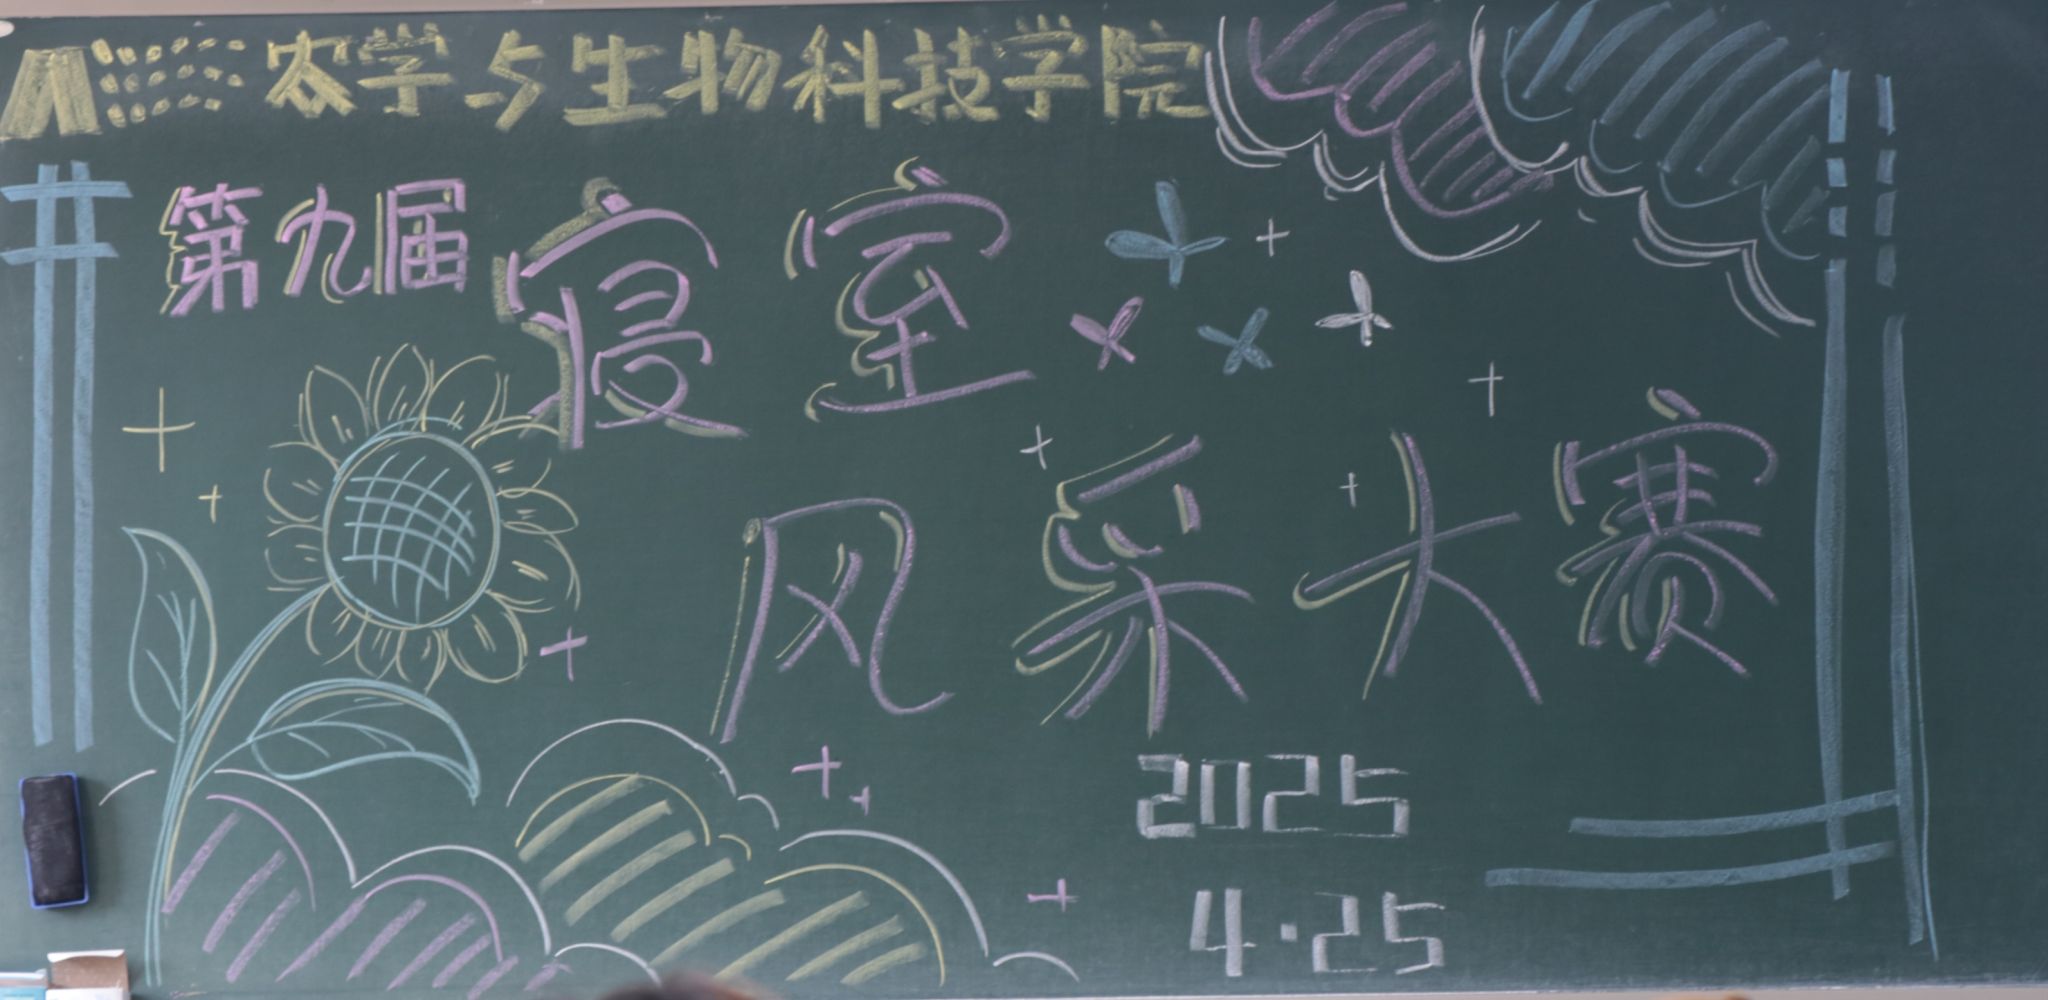 农学与生物科技学院
第九届寝室
风采大赛
2025
4·25